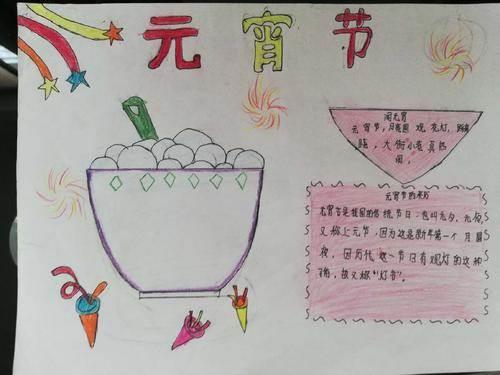 元宵节
闹元宵
元宵节，月有圆 观 花灯，
踏，大街小巷真热
闹。
元宵节的来历
元宵节是我国的传统节日：也叫元夕、元夜，
又称上元节，因为这是新年第一个月圆
夜，因历代这一节日有观灯的这种
俗，故又称“灯节”。